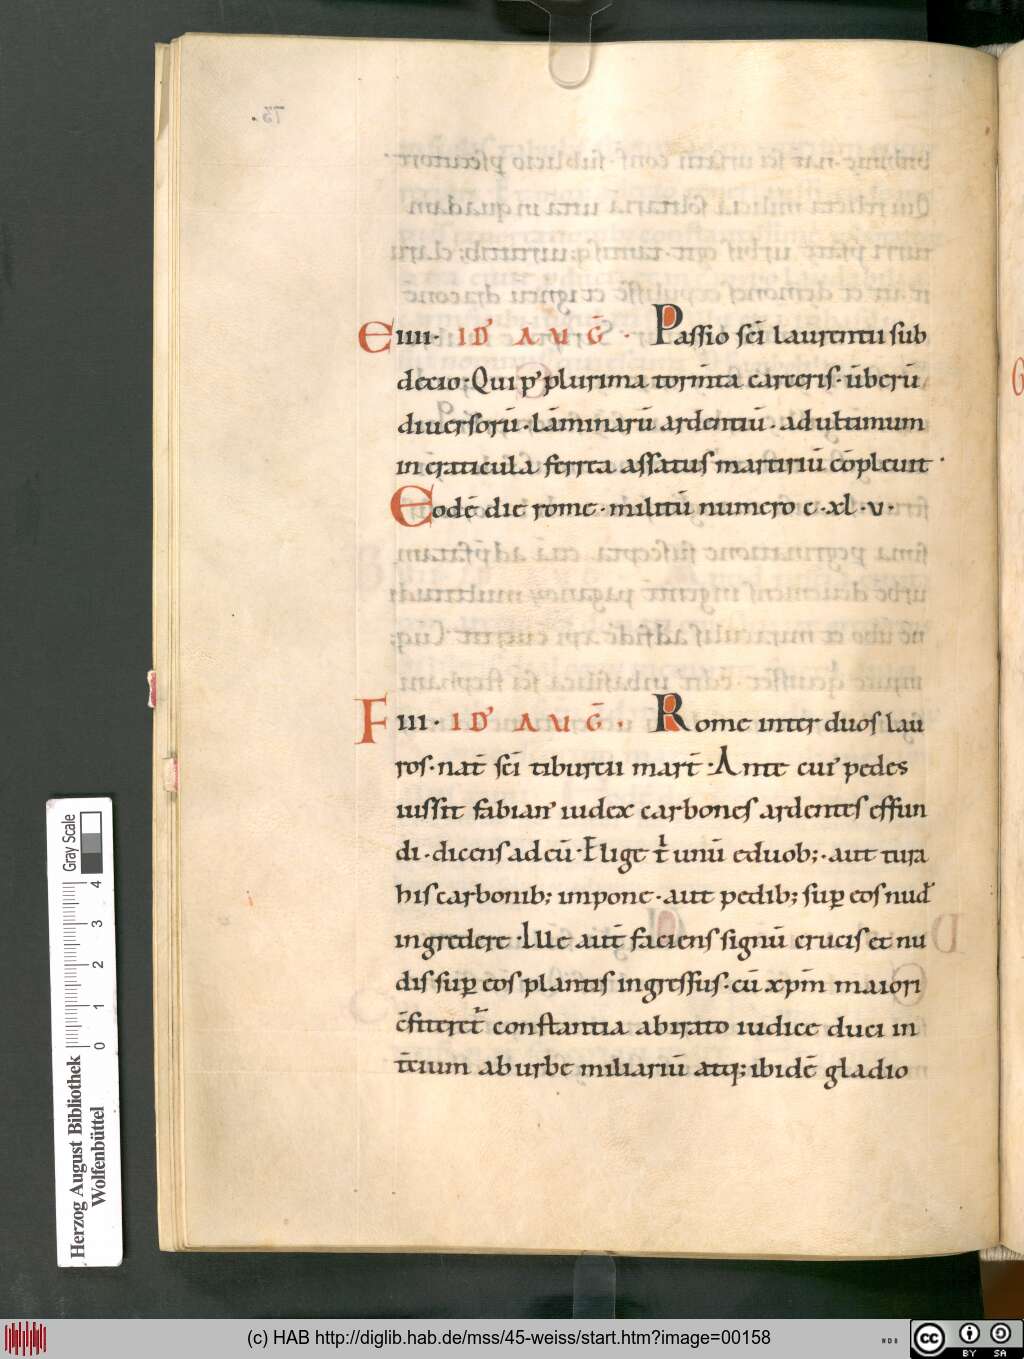 E iiii · ID᾿ AUḠ · Passio sc̄i laurentii sub
decio · Qui p᾿ plurima torm̄ta carceris · ūberū
diuersorū · lāminarū ardentiū · ad ultimum
in craticula ferrea assatus martiriū cōpleuit ·
Eodē die rome · militū numero c · xl · v ·
F iii · ID᾿ AUḠ · Rome inter duos lau
ros · nat̄ sc̄i tiburtii mart̄ · Ante cui᾿ pedes
iussit fabian᾿ iudex carbones ardentes effun
di · dicens ad eū · Elige t̄ unū eduob; · aut tura
his carbonib; impone · aut pedib; suꝑ eos nud᾿
ingredere · Ille aut̄ faciens signū crucis et nu
dis suꝑ eos plantis ingressus · cū xp̄m maiori
c̄fiteret̄ constantia ab irato iudice duci in
t̄cium ab urbe miliariū atq; ibidē gladio
73
Gray Scale
4 3 2 1 0
Herzog August Bibliothek
Wolfenbüttel
(c) HAB http://diglib.hab.de/mss/45-weiss/start.htm?image=00158
WDB
cc BY SA